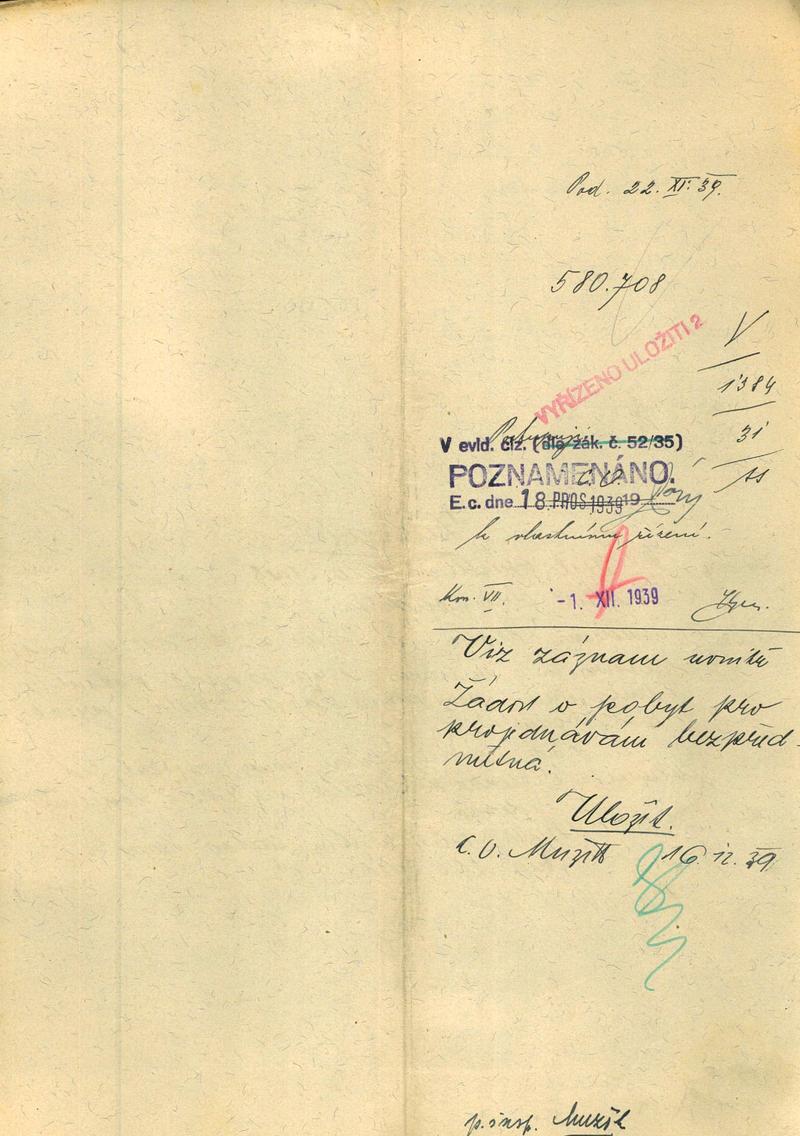 Pod. 22. XI. 39.
580.708
V
1384
31
11
VYŘÍZENO ULOŽITI 2
V evid. ciz. (dle zák. č. 52/35)
POZNAMENÁNO.
E. c. dne 18. PROS 1939 19
k vlastnímu řízení.
Kom. VII. -1. XII. 1939
Viz záznam uvnitř
Žádost o pobyt pro
projednávám bezpřed-
mětná.
Uložit.
C. O. Muzik 16. 12. 39
p. insp. Muzik